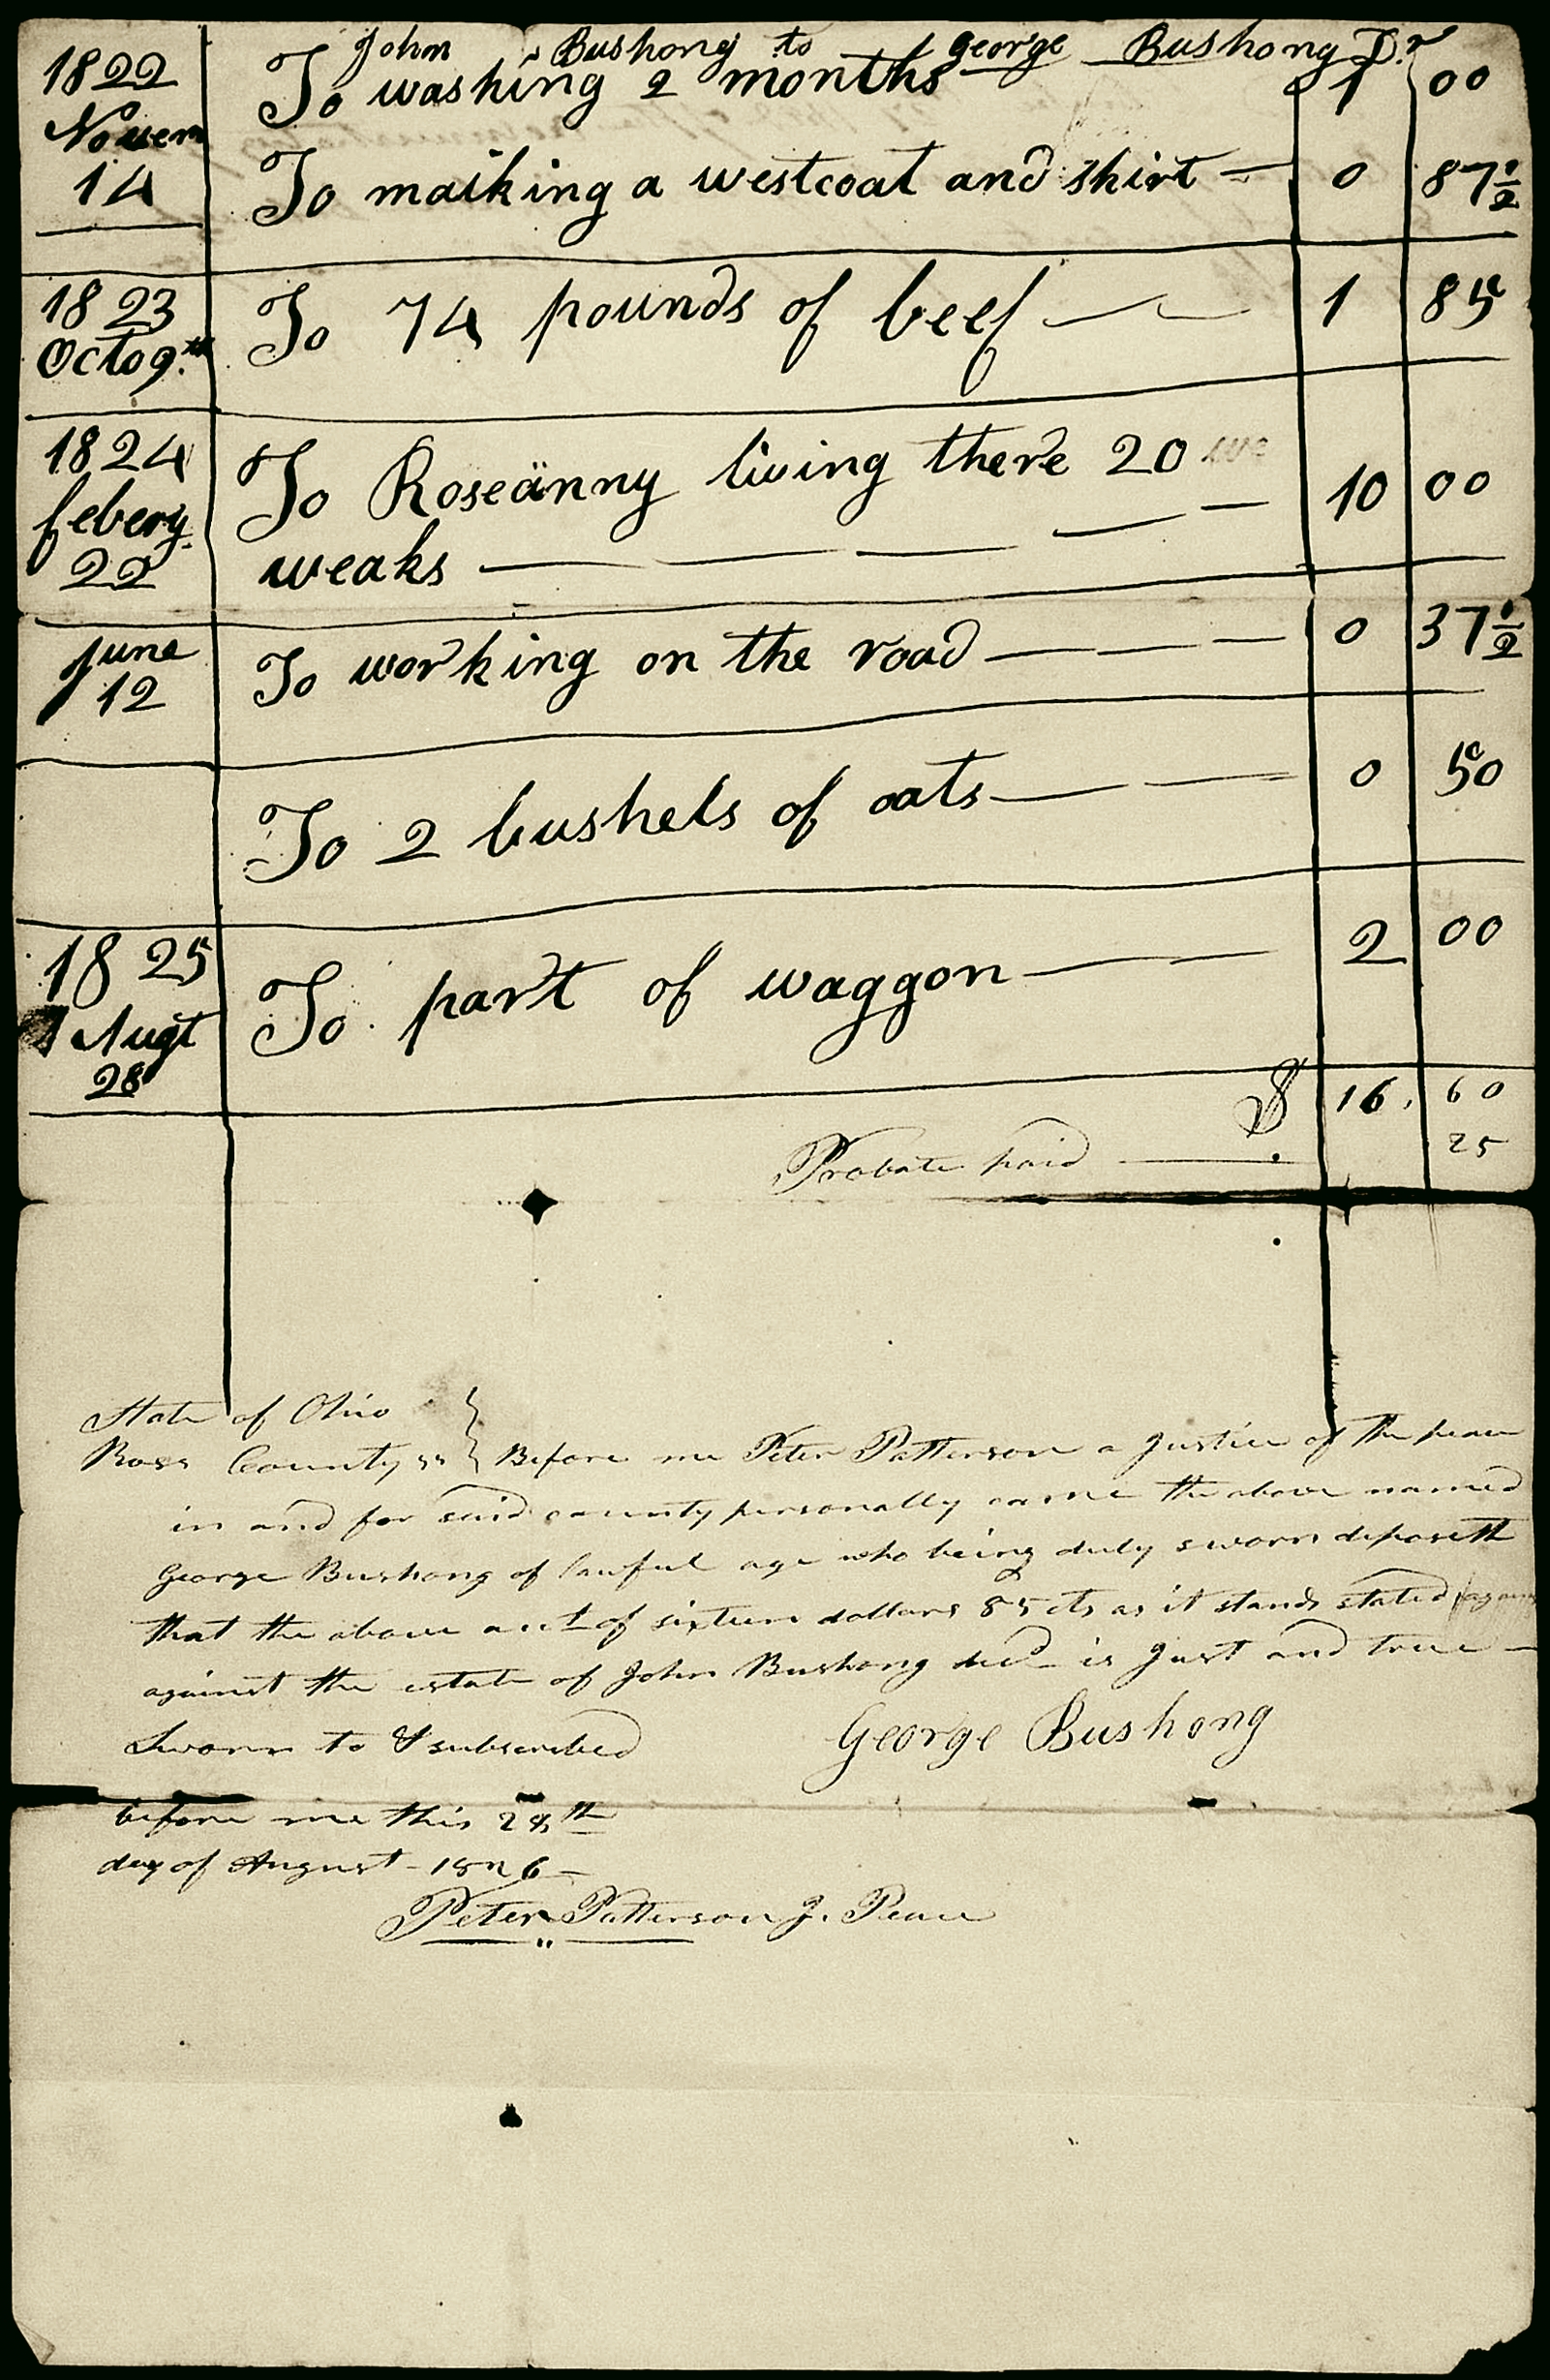 John Bushong to George Bushong Dr
1822 To washing 2 months 1 00
Novem
14 To maiking a westcoat and shirt 0 87 1/2
1823 To 74 pounds of beef 1 85
Octo 9th
1824 To Roseänny living there 20 we 10 00
febery
22 weaks
June To working on the road 0 37 1/2
12
To 2 bushels of oats 0 50
1825 To part of waggon 2 00
Augt
28
$ 16. 60
Probate paid 25
State of Ohio
Ross County ss } Before me Peter Patterson a Justice of the peace
in and for said county personally came the above named
George Bushong of lawful age who being duly sworn deposeth
that the above act of sixteen dollars 85 cts as it stands stated
against the estate of John Bushong decd is Just and true
Sworn to & subscribed George Bushong
before me this 28th
day of August - 1826
Peter Patterson J. Peace